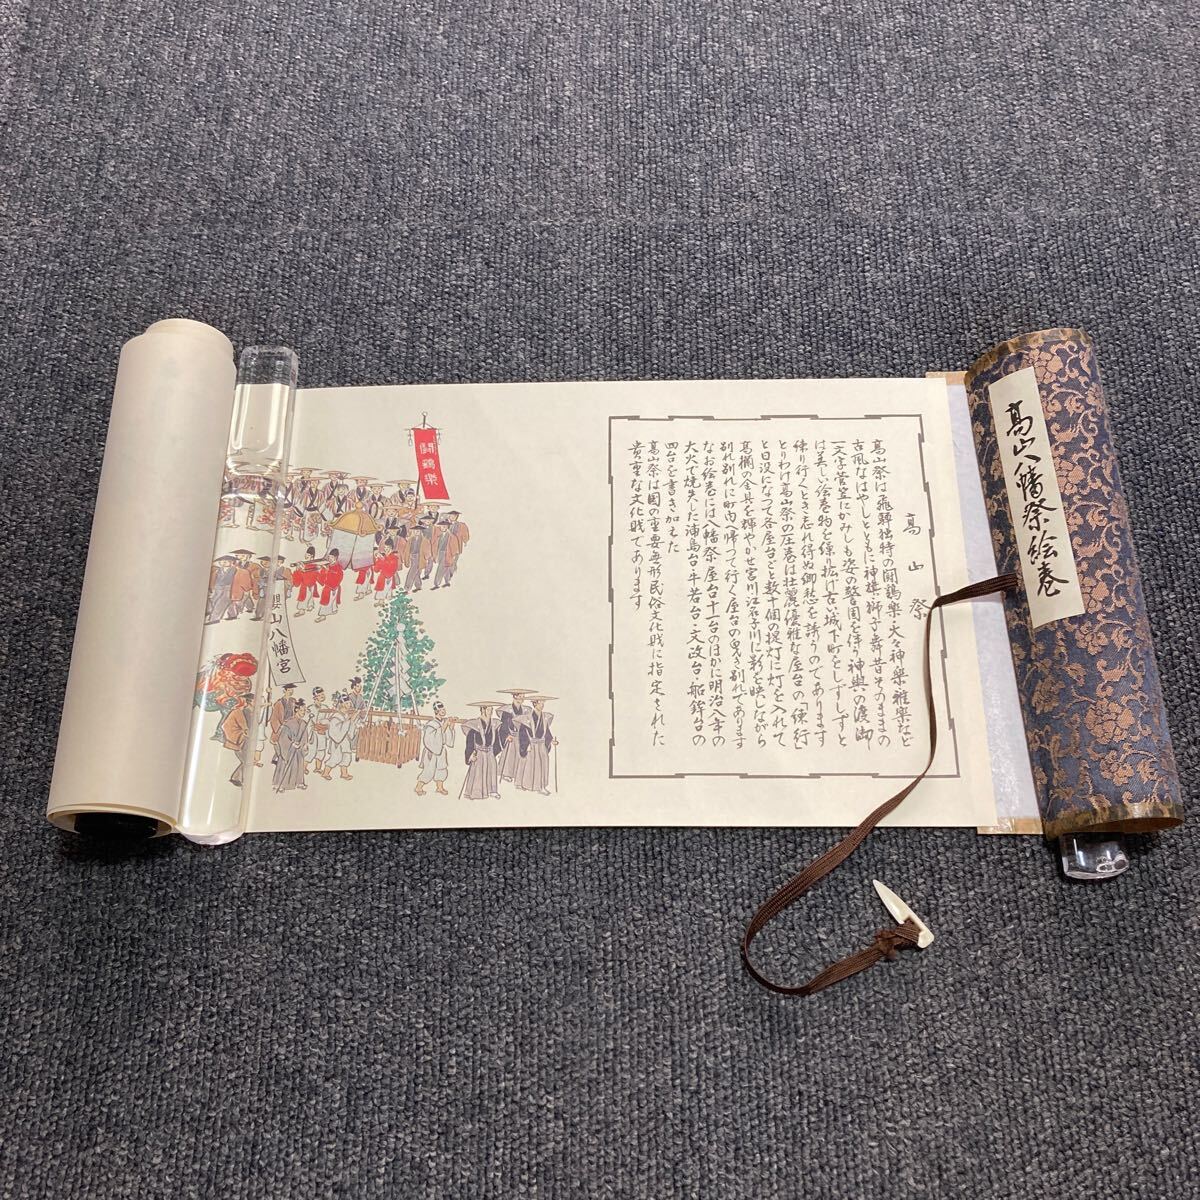 高山八幡祭絵巻
高山祭
高山祭は飛騨独特の闘鶏樂・大々神樂・雅樂など
古風なはやしとともに神旗・獅子舞昔そのままの
一文字菅笠にかみしも姿の警固を伴う神輿の渡御
は美しい絵巻物を繰り拡げ古い城下町をしずしずと
練り行くとき忘れ得ぬ御愁を誘うのであります
とりわけ高山祭の圧巻は壮麗優雅な屋台の「練行」
と日没になって各屋台ごと数十個の提灯に灯を入れて
高欄の金具を輝やかせ宮川江名子川に影を映しながら
別れ別れに町内へ帰って行く屋台の曳き別れであります
なお絵巻には八幡祭屋台十一台のほかに明治八年の
大火で焼失した浦島台・牛若台・文政台・船鉾台の
四台を書き加えた
高山祭は国の重要無形民俗文化財に指定された
貴重な文化財であります
闘鶏樂
櫻山八幡宮